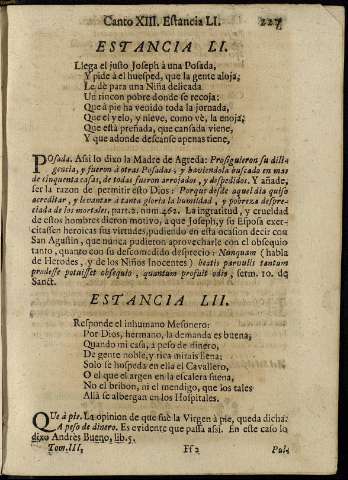 Canto XIII. Estancia LI. 227
ESTANCIA LI.
Llega el justo Joseph à una Posada,
Y pide à el huesped, que la gente aloja,
Le dè para una Niña delicada
Un rincon pobre donde se recoja:
Que à pie ha venido toda la jornada,
Que el yelo, y nieve, como vè, la enoja;
Que està preñada, que cansada viene,
Y que adonde descanse apenas tiene,
Posada. Assi lo dixo la Madre de Agreda: Prosiguieron su dili-
gencia, y fueron à otras Posadas; y haviendola buscado en mas
de cinquenta casas, de todas fueron arrojados, y despedidos. Y añade,
ser la razon de permitir esto Dios: Porque desde aquel dia quiso
acreditar, y levantar à tanta gloria la humildad, y pobreza despre-
ciada de los mortales, part. 2. num. 462. La ingratitud, y crueldad
de estos hombres dieron motivo, à que Joseph, y su Esposa exer-
citassen heroicas sus virtudes, pudiendo en esta ocasion decir con
San Agustin, que nunca pudieron aprovecharle con el obsequio
tanto, quanto con su descomedido desprecio: Nunquam (habla
de Herodes, y de los Niños Inocentes) beatis parvulis tantum
prodesse potuisset obsequio, quantum profuit odio, serm. 10. de
Sanct.
ESTANCIA LII.
Responde el inhumano Mesonero:
Por Dios, hermano, la demanda es buena;
Quando mi casa, à peso de dinero,
De gente noble, y rica mirais llena;
Solo se hospeda en ella el Cavallero,
O el que argen en la escalera suena,
No el bribon, ni el mendigo, que los tales
Allà se albergan en los Hospitales.
Que à pie. La opinion de que fuè la Virgen à pie, queda dicha.
A peso de dinero. Es evidente que passa assi. En este caso lo
dixo Andrès Bueno, lib. 5.
Tom. III. Ff2 Pul-